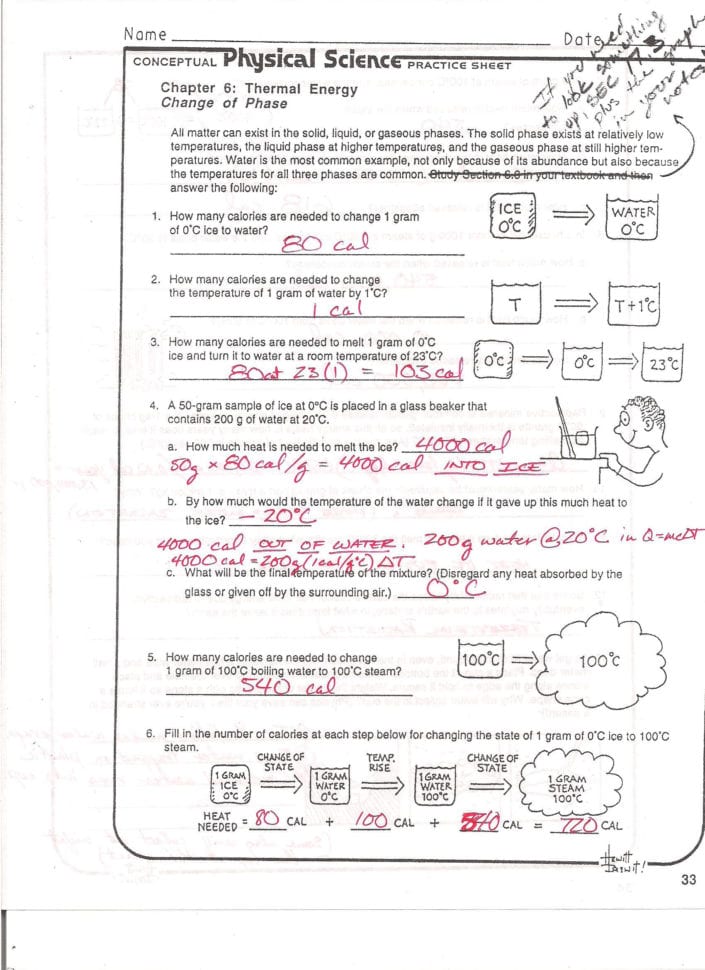 Name
Date
If you need
to look something
up, SEC 7.3
plus the graph
in your
notes!
CONCEPTUAL Physical Science PRACTICE SHEET
Chapter 6: Thermal Energy
Change of Phase
All matter can exist in the solid, liquid, or gaseous phases. The solid phase exists at relatively low
temperatures, the liquid phase at higher temperatures, and the gaseous phase at still higher tem-
peratures. Water is the most common example, not only because of its abundance but also because
the temperatures for all three phases are common. Study Section 6.8 in your textbook and then
answer the following:
1. How many calories are needed to change 1 gram
of 0°C ice to water?
80 cal
ICE 0°C
WATER 0°C
2. How many calories are needed to change
the temperature of 1 gram of water by 1°C?
1 cal
T
T+1°C
3. How many calories are needed to melt 1 gram of 0°C
ice and turn it to water at a room temperature of 23°C?
23(1) = 103 cal
0°C
0°C
23°C
4. A 50-gram sample of ice at 0°C is placed in a glass beaker that
contains 200 g of water at 20°C.
a. How much heat is needed to melt the ice? 4000 cal
50g × 80 cal/g = 4000 cal INTO ICE
b. By how much would the temperature of the water change if it gave up this much heat to
the ice? -20°C
4000 cal OUT OF WATER. 200g water @20°C in Q=mcΔT
4000 cal = 200g(1cal/g°C) ΔT
c. What will be the final temperature of the mixture? (Disregard any heat absorbed by the
glass or given off by the surrounding air.) 0°C
5. How many calories are needed to change
1 gram of 100°C boiling water to 100°C steam?
540 cal
100°C
100°C
6. Fill in the number of calories at each step below for changing the state of 1 gram of 0°C ice to 100°C
steam.
CHANGE OF STATE
TEMP. RISE
CHANGE OF STATE
1 GRAM ICE 0°C
1 GRAM WATER 0°C
1 GRAM WATER 100°C
1 GRAM STEAM 100°C
HEAT NEEDED = 80 CAL + 100 CAL + 540 CAL = 720 CAL
Hewitt
33